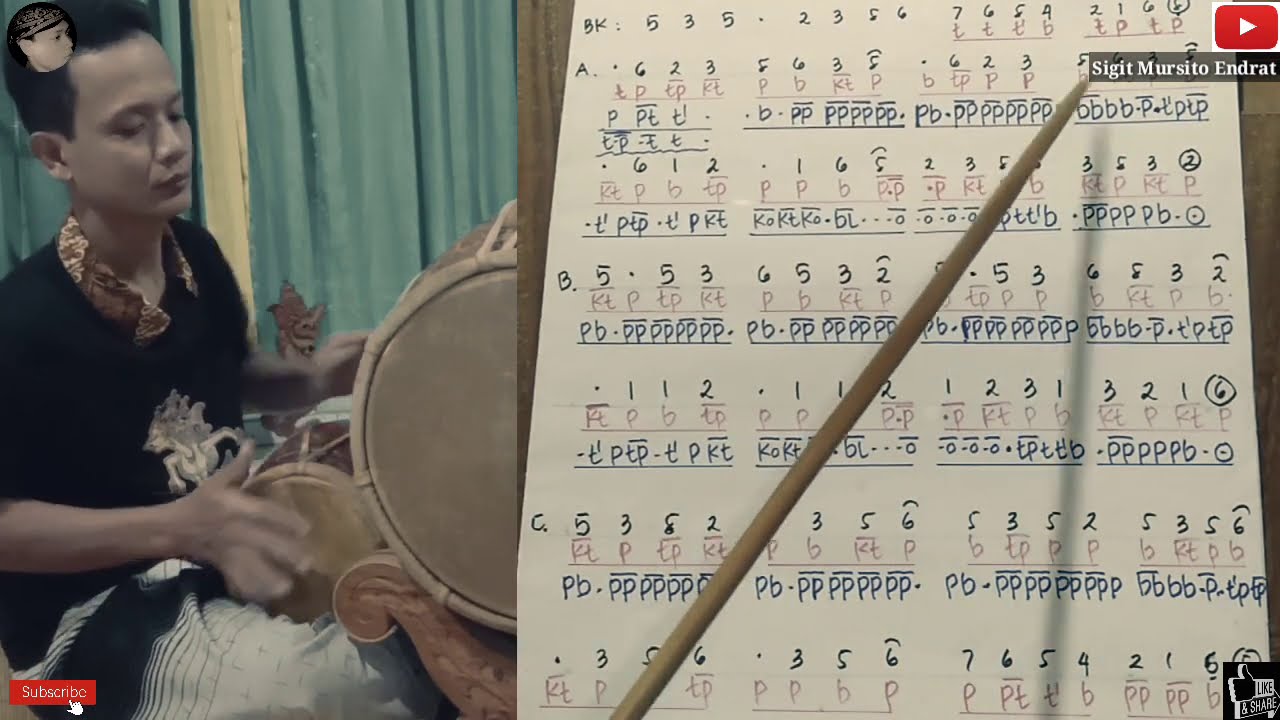 BK : 5 3 5 . 2 3 5 6 7 6 5 4 2 1 6 5
t t t' b t p t p
Sigit Mursito Endrat
A. . 6 2 3 5 6 3 5 . 6 2 3 5
t p tp kt p b kt p b tp p p
p pt t' . . b . pp pppppp. pb.pppppppp bbbb.p.t'ptp
t.p .t t .
. 6 1 2 . 1 6 5 2 3 5 3 5 3 2
kt p b tp p p b p.p .p kt b kt p kt p
.t' ptp .t' p kt koktko.bl...o .o.o.o ptt'b .pppp pb.⊙
B. 5 . 5 3 6 5 3 2 . 5 3 6 5 3 2
kt p tp kt p b kt p tp p p b kt p b.
pb.pppppppp. pb.pp pppppp pb.pppppppppp bbbb.p.t'ptp
. 1 1 2 . 1 1 2 1 2 3 1 3 2 1 6
kt p b tp p p p.p .p kt p b kt p kt p
.t' ptp .t' p kt kokt .bl...o .o.o.o.tptt'b .pppppb.⊙
C. 5 3 5 2 3 5 6 5 3 5 2 5 3 5 6
kt p tp kt p b kt p b tp p p b kt p b
pb.pppppp pb.pp pppppp. pb.ppppppppp bbbb.p.t'ptp
. 3 5 6 . 3 5 6 7 6 5 4 2 1 6
kt p tp p p b p p pt t' b pp pp b
Subscribe
LIKE
& SHARE